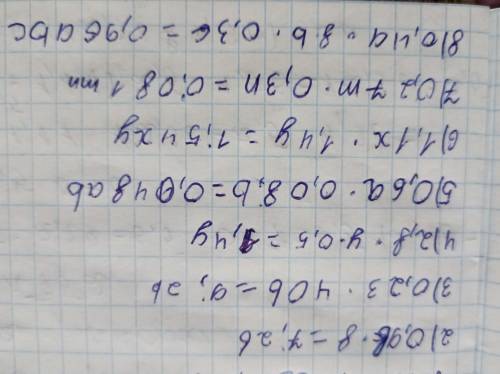 2) 0,9b · 8 = 7,2b
3) 0,23 · 40b = 9,2b
4) 2,8 · y · 0,5 = 1,4y
5) 0,6a · 0,08b = 0,048ab
6) 1,1x · 1,4y = 1,54xy
7) 0,27m · 0,3n = 0,081mn
8) 0,4a · 8b · 0,3c = 0,96abc